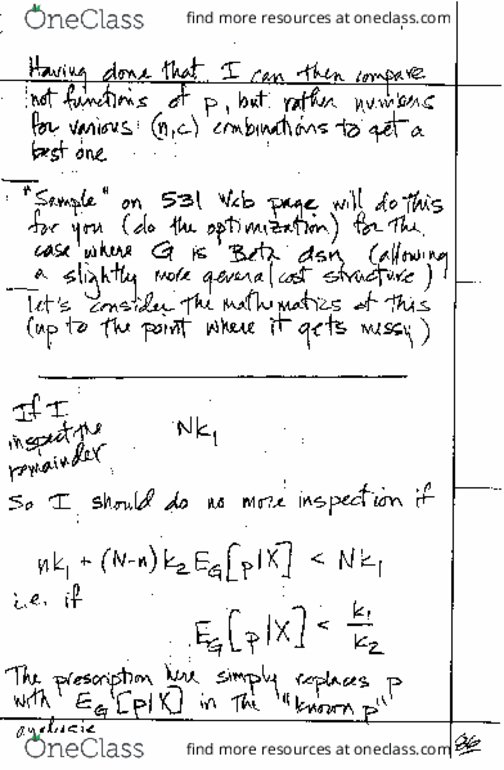 OneClass find more resources at oneclass.com
Having done that I can then compare
not functions of p, but rather numbers
for various (n,c) combinations to get a
best one
"Sample" on 531 Web page will do this
for you (do the optimization) for the
case where G is Beta dsn (allowing
a slightly more general cost structure)
let's consider the mathematics of this
(up to the point where it gets messy)
If I
inspect the
remainder
Nk₁
So I should do no more inspection if
nk₁ + (N-n)k₂E_G[p|X] < Nk₁
i.e. if
E_G[p|X] < k₁/k₂
The prescription here simply replaces p
with E_G[p|X] in the "known p"
analysis
OneClass find more resources at oneclass.com